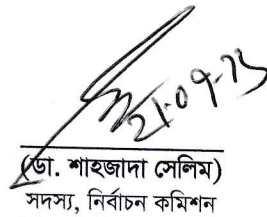 21.09.25
(ডা. শাহজাদা সেলিম)
সদস্য, নির্বাচন কমিশন